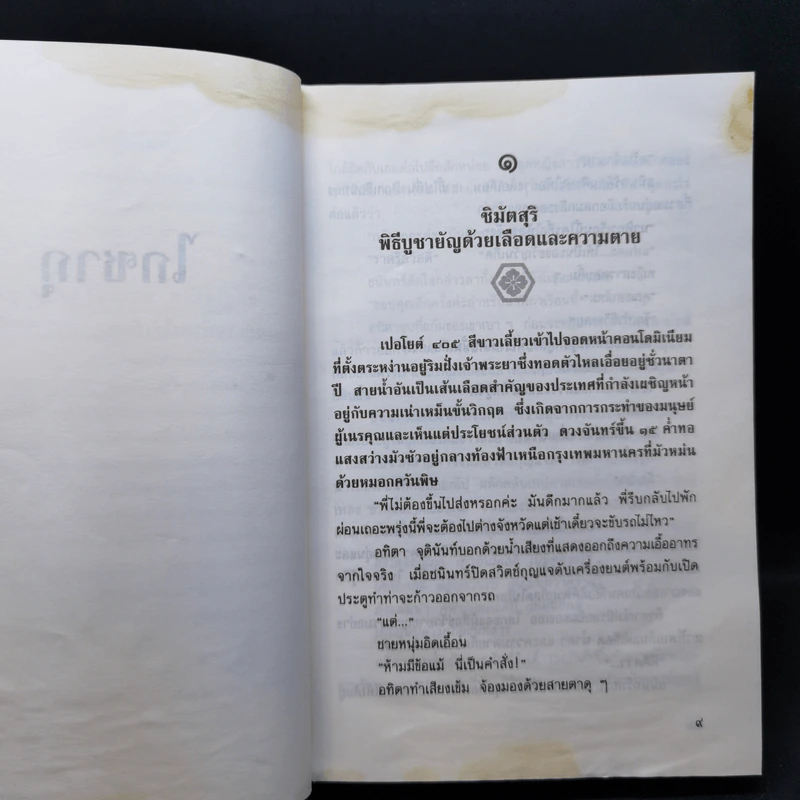 ๑
ชิมัตสุริ
พิธีบูชายัญด้วยเลือดและความตาย
เปอโยต์ ๔๐๕ สีขาวเลี้ยวเข้าไปจอดหน้าคอนโดมิเนียม
ที่ตั้งตระหง่านอยู่ริมฝั่งเจ้าพระยาซึ่งทอดตัวไหลเอื่อยอยู่ชั่วนาตา
ปี สายน้ำอันเป็นเส้นเลือดสำคัญของประเทศที่กำลังเผชิญหน้า
อยู่กับความเน่าเหม็นขั้นวิกฤต ซึ่งเกิดจากการกระทำของมนุษย์
ผู้เนรคุณและเห็นแต่ประโยชน์ส่วนตัว ดวงจันทร์ขึ้น ๑๕ ค่ำทอ
แสงสว่างมัวซัวอยู่กลางท้องฟ้าเหนือกรุงเทพมหานครที่มัวหม่น
ด้วยหมอกควันพิษ
"พี่ไม่ต้องขึ้นไปส่งหรอกค่ะ มันดึกมากแล้ว พี่รีบกลับไปพัก
ผ่อนเถอะพรุ่งนี้พี่จะต้องไปต่างจังหวัดแต่เช้าเดี๋ยวจะขับรถไม่ไหว"
อทิตา จุตินันท์บอกด้วยน้ำเสียงที่แสดงออกถึงความเอื้ออาทร
จากใจจริง เมื่อชนินทร์ปิดสวิตช์กุญแจดับเครื่องยนต์พร้อมกับเปิด
ประตูทำท่าจะก้าวออกจากรถ
"แต่..."
ชายหนุ่มอิดเอื้อน
"ห้ามมีข้อแม้ นี่เป็นคำสั่ง!"
อทิตาทำเสียงเข้ม จ้องมองด้วยสายตาดุ ๆ
๙